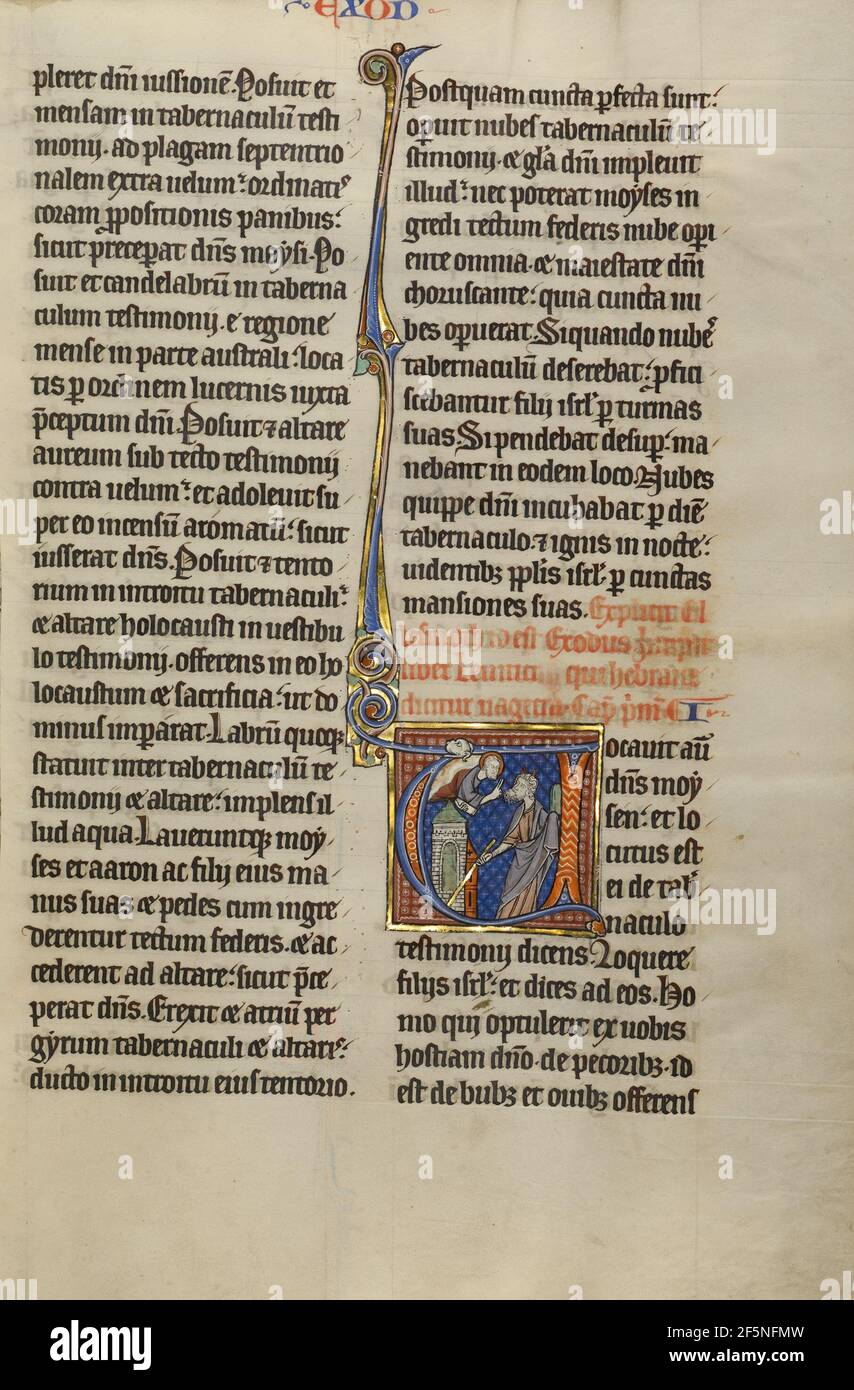 EXOD
pleret dñi iussionē. Posuit et
mensam in tabernaculū testi
monij. ad plagam septentrio
nalem extra uelum: ordinatis
coram ꝓpositionis panibus:
sicut preceꝑat dñs moysi. Po
suit et candelabrū in taberna
culum testimonij. e regione
mense in parte australi: loca
tis ꝑ ordinem lucernis iuxta
p̄ceptum dñi. Posuit ⁊ altare
aureum sub tecto testimonij
contra uelum: et adoleuit su
per eo incensū aromatū: sicut
iusserat dñs. Posuit ⁊ tento
rium in introitu tabernaculi:
⁊ altare holocausti in uestibu
lo testimonij. offerens in eo ho
locaustum ⁊ sacrificia: ut do
minus imꝑarat. Labrū quoqꝫ
statuit inter tabernaculū te
stimonij ⁊ altare: implens il
lud aqua. Laueruntqꝫ moy
ses et aaron ac filij eius ma
nus suas ⁊ pedes cum ingre
derentur tectum federis. ⁊ ac
cederent ad altare: sicut p̄ce
perat dñs. Erexit ⁊ atriū per
gyrum tabernaculi ⁊ altaris:
ducto in introitu eius tentorio.
Postquam cuncta ꝑfecta sunt:
oꝑuit nubes tabernaculū te
stimonij. ⁊ gl̄a dñi impleuit
illud: nec poterat moyses in
gredi tectum federis nube oꝑi
ente omnia. ⁊ maiestate dñi
choruscante: quia cuncta nu
bes oꝑuerat. Siquando nubes
tabernaculū deserebat: ꝓfici
scebantur filij isrl̄ ꝑ turmas
suas. Si pendebat desuꝑ: ma
nebant in eodem loco. Nubes
quippe dñi incubabat ꝑ diē
tabernaculo. ⁊ ignis in nocte:
uidentibꝫ ꝓplis isrl̄ ꝑ cunctas
mansiones suas. Explicit
est Exodus Incipit
liber qui hebraice
dicitur Cap̄ pm̄ I
Vocauit aū
dñs moy
sen: et lo
cutus est
ei de tab̄
naculo
testimonij dicens. Loquere
filijs isrl̄: et dices ad eos. Ho
mo qui optulerit ex uobis
hostiam dño. de pecoribꝫ. id
est de bubꝫ et ouibꝫ offerens
a
alamy
a
a
alamy
Image ID: 2F5NFMW
www.alamy.com